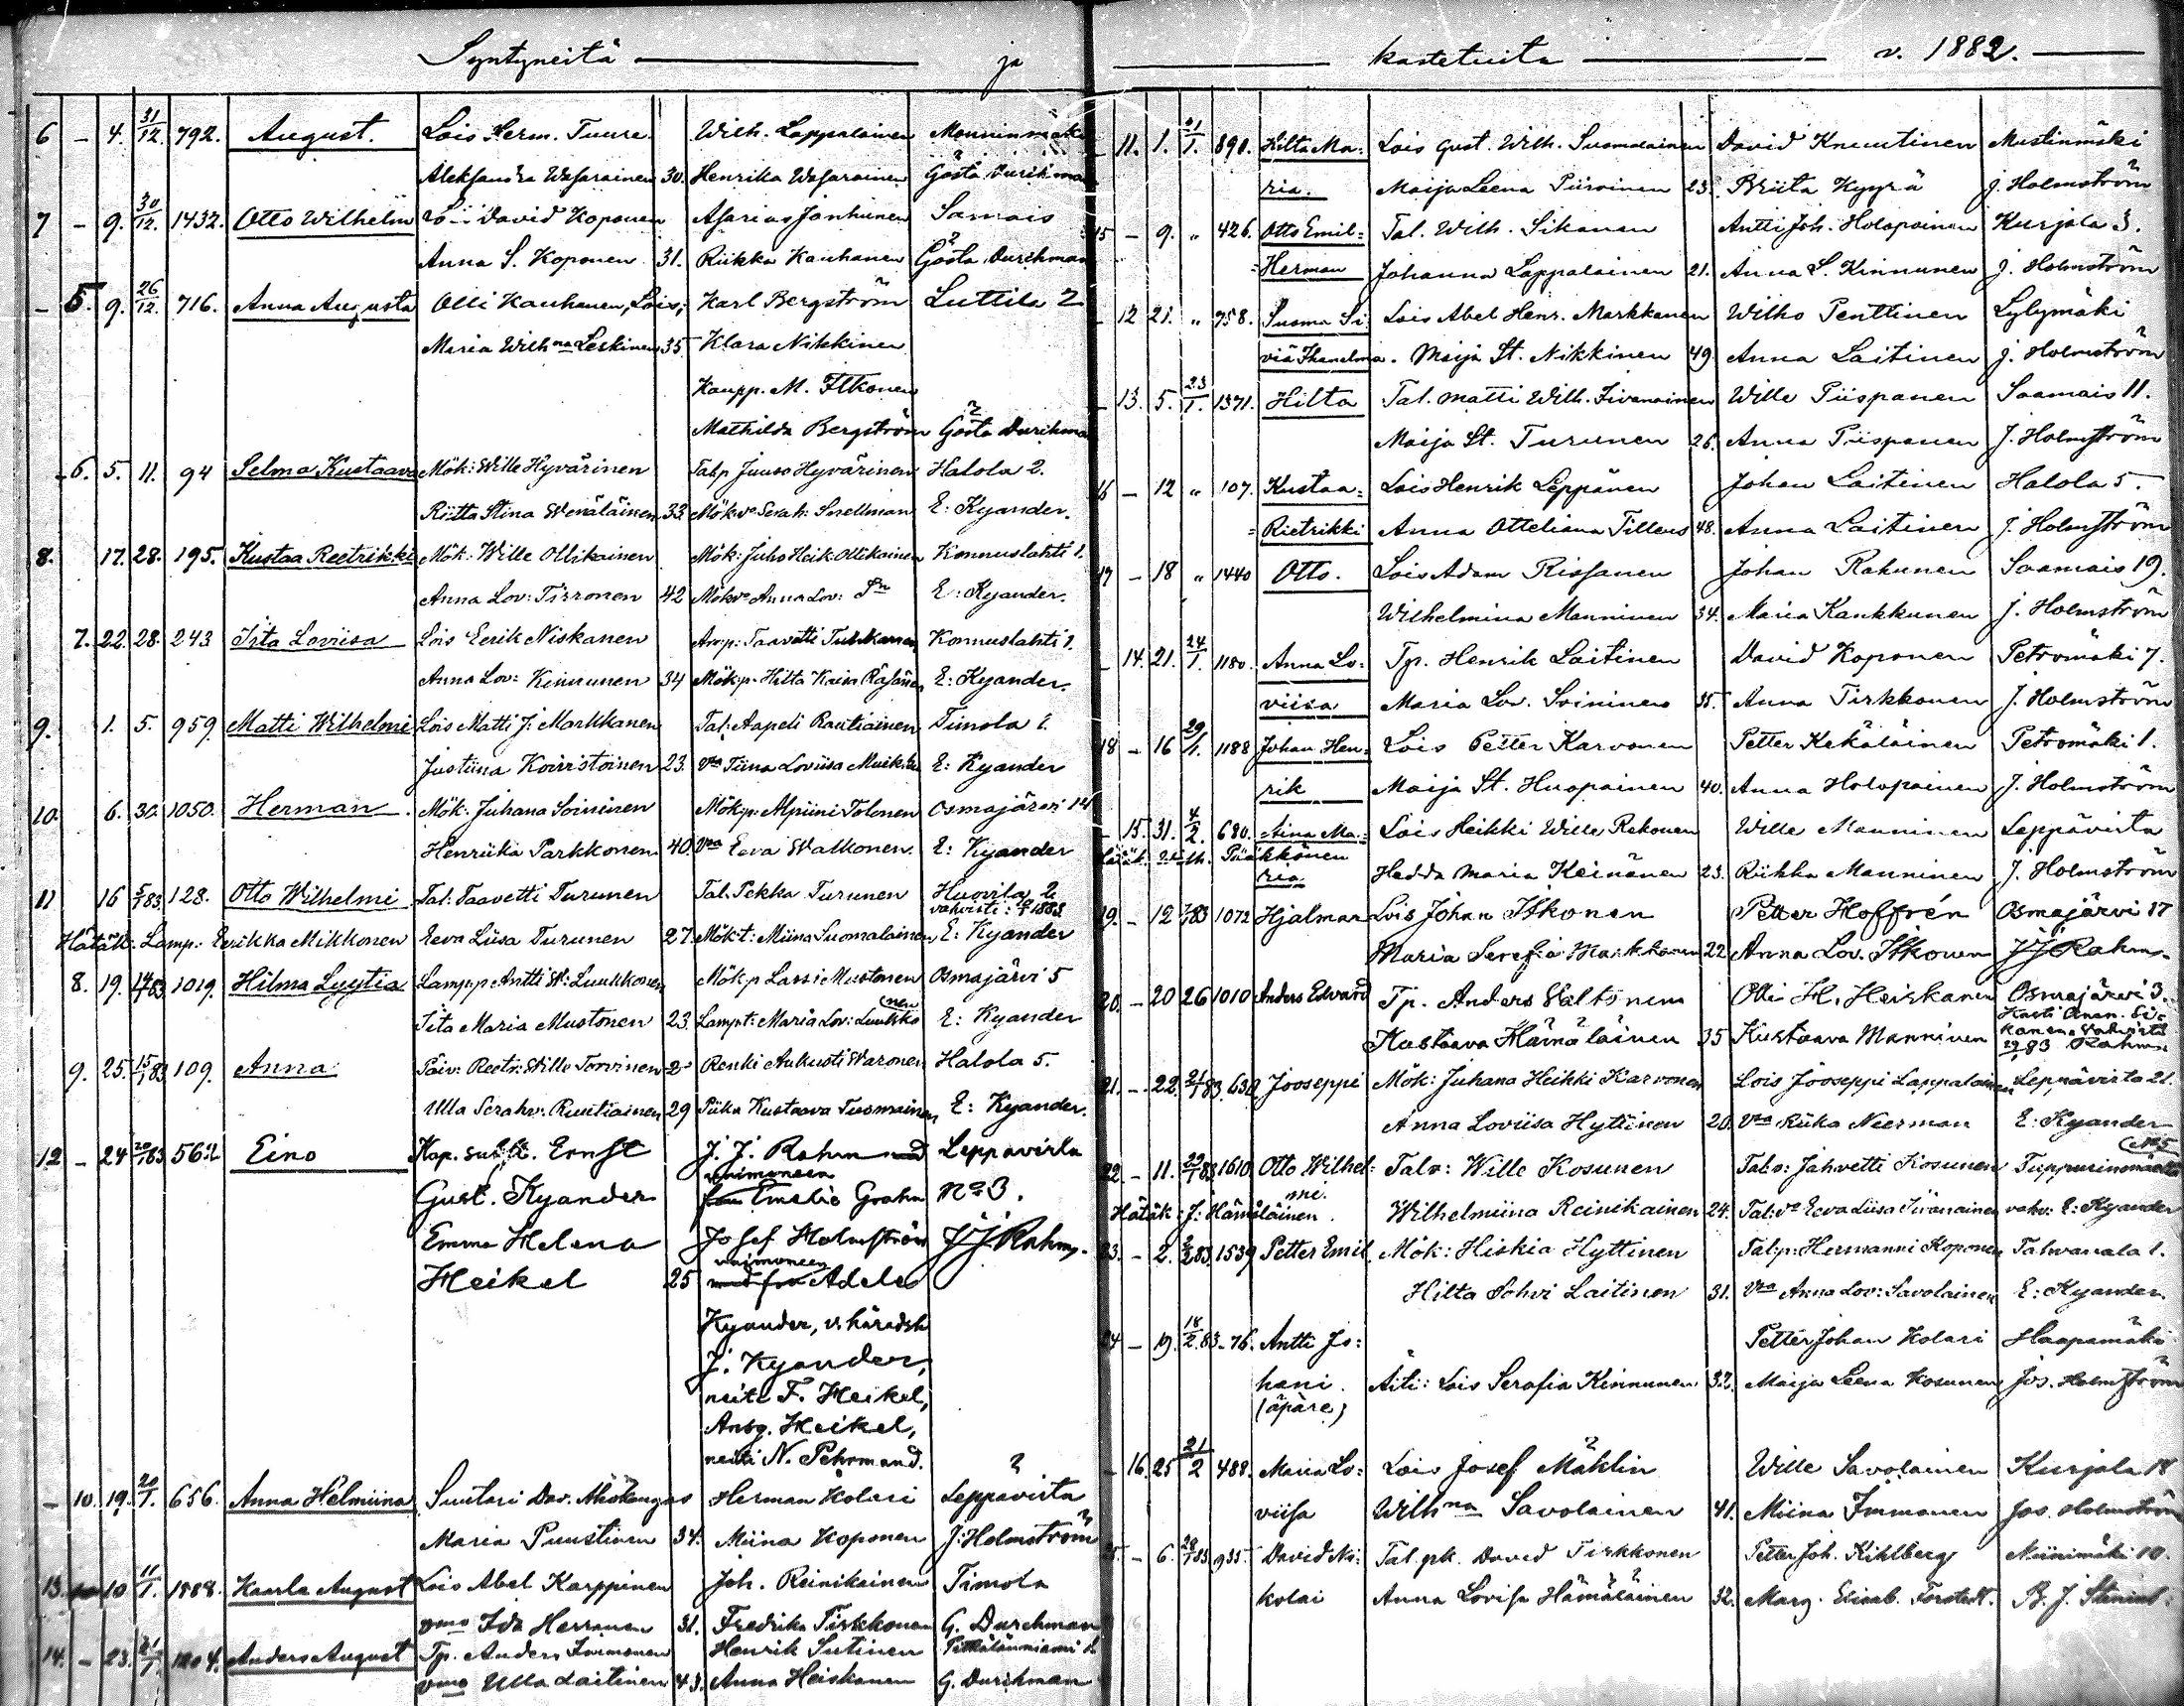 Syntyneitä ja
6 - 4. 31/12. 792. August. Lois Herm. Tuure. Wilh. Lappalainen Mouninmäki
Aleksandra Wasarainen 30. Henrika Wasarainen Gösta Durchman
7 - 9. 30/12. 1432. Otto Wilhelm David Koponen Asarias Janhunen Samais
Anna S. Koponen 31. Riikka Kauhanen Gösta Durchman
- 5. 9. 26/12. 716. Anna Augusta Olli Kauhanen, Lois, Karl Bergström Luttila 2
Maria Wilhna Leskinen 35 Klara Nikkinen
Kaupp. M. Itkonen
Mathilda Bergström Gösta Durchman
6. 5. 11. 94 Selma Kustaava Mök: Wille Hyvärinen Talp Juuso Hyvärinen Halola 2.
Riitta Stina Wenäläinen 33. Mökv Serah: Snellman E: Kyander.
8. 17. 28. 195. Kustaa Reetrikki Mök: Wille Ollikainen Mök: Juho Heik. Ollikainen Konnuslahti 1.
Anna Lov: Tirronen 42 Mökv Anna Lov: E: Kyander.
7. 22. 28. 243 Iita Loviisa Lois Eerik Niskanen Taavetti Konnuslahti 1.
Anna Lov: Kinnunen 34 Mök:p. Hilta E: Kyander.
9. 1. 5. 959. Matti Wilhelmi Lois Matti J: Markkanen Tal: Aapeli Rautiainen Timola 1.
Justiina Koiristoinen 23. Vma Tiina Loviisa E: Kyander
10. 6. 30 1050. Herman Mök: Juhana Soininen Mök:p: Alpiini Tolonen Osmajärvi 14
Henriika Parkkonen 40. Vma Eeva Walkonen. E: Kyander
11 16 5/1 83 128. Otto Wilhelmi Tal: Taavetti Turunen Tal. Pekka Turunen Huorila 2
vahvisti: 1883
Hätäk: Lamp: Eerikka Mikkonen Eeva Liisa Turunen 27. Mök:t: Miina Suomalainen E: Kyander
8. 19. 14/1 83 1019. Hilma Lyytia Lamp:p Antti W: Luukkonen Mök:p Lassi Mustonen Osmajärvi 5
Iita Maria Mustonen 23. Lamp:t: Maria Lov: Luukkonen E: Kyander
9. 25. 15/1 83 109. Anna Räiv: Reetr: Wille Torvinen Renki Aukusti Waronen Halola 5.
Ulla Serahv: Ruutiainen 29 Piika Kustaava Tuomainen E: Kyander.
12 - 24 20/1 83 562 Eino Kap. Ernst J. J. Rahm Leppävirta
Gust. Kyander vaimoneen Emelie Grahn No 3.
Emma Helena Josef Holmström J J Rahm.
Heikel 25 vaimoneen Adele
Kyander, v. häradsh
J. Kyander,
neiti F. Heikel,
Ansg. Heikel,
neiti N. Pehrmand.
- 10. 19. 20/1. 656. Anna Helmiina Suutari Dav. Ahokangas Herman Kolari Leppävirta
Maria Puustinen 34. Miina Koponen J: Holmström
13. 10 11/1. 1888. Kaarla August Lois Abel Karppinen Joh. Reinikainen Timola
vmo Ida Herranen 31. Fredrika Tirkkonen G. Durchman
14. - 23. 21/1. 1204. Anders August Tp. Anders Immonen Henrik Sutinen
vmo Ulla Laitinen 43. Anna Heiskanen G. Durchman
kastetuita v. 1882.
11. 1. 21/1. 890. Hilta Ma= Lois Gust. Wilh. Suomalainen David Knuutinen Mustinmäki
ria. Maija Leena Piiroinen 23. Briita Kyyrä J. Holmström
15 - 9. " 426. Otto Emil= Tal. Wilh. Sikanen Antti Joh. Holopainen Kurjala 3.
=Herman Johanna Lappalainen 21. Anna L. Kinnunen J. Holmström
12 21. " 758. Suoma Si Lois Abel Henr. Markkanen Wilho Penttinen Lylymäki
viä Maija St. Nikkinen 49. Anna Laitinen J. Holmström
13. 5. 23/1. 1371. Hilta Tal. Matti Wilh. Iivanainen Wille Piispanen Saamais 11.
Maija St. Turunen 26. Anna Piispanen J. Holmström
16 - 12 " 107. Kustaa= Lois Henrik Leppänen Johan Laitinen Halola 5.
=Rietrikki Anna Otteliana Tillens 48. Anna Laitinen J. Holmström
17 - 18 " 1440 Otto. Lois Adam Rissanen Johan Rahunen Saamais 19.
Wilhelmina Manninen 34. Maria Kankkunen J. Holmström
14. 21. 24/1. 1180. Anna Lo= Tp. Henrik Laitinen David Koponen Petromäki 7.
viisa Maria Lov. Soininen 35. Anna Tirkkonen J. Holmström
18 - 16 29/1. 1188 Johan Hen= Lois Petter Karvonen Petter Kekäläinen Petromäki 1.
rik Maija St. Huopainen 40. Anna Holopainen J. Holmström
15. 31. 4/2. 680. Aina Ma.= Lois Heikki Wille Rekonen Wille Manninen Leppävirta
Hätäk. Wilh. Pääkkönen
ria. Hedda Maria Keinänen 23. Riikka Manninen J. Holmström
19. - 12 83 1072 Hjalmar Lois Johan Itkonen Petter Hoffrén Osmajärvi 17
Maria Serefia Markkanen 22 Anna Lov. Itkonen J J Rahm.
20. - 20 26 1010 Anders Edvard Tp. Anders Valtonen Olli H. Heiskanen Osmajärvi 3.
Kustaava Hämäläinen 35 Kustaava Manninen 83 Rahm
21. - 22. 21/1 83 630 Jooseppi Mök: Juhana Heikki Karvonen Lois Jooseppi Lappalainen Leppävirta 21.
Anna Loviisa Hyttinen 20. Vma Riika Neerman E: Kyander
22. - 11. 29/1 83 1610 Otto Wilhel= Talv: Wille Kosunen Tal:v: Jahvetti Kosunen Tuppurinmäellä No 5
mi.
Hätäk: J: Hämäläinen. Wilhelmiina Reinikainen 24. Tal:v Eeva Liisa Iivanainen vahv: E: Kyander
23. - 2. 83 1539 Petter Emil Mök: Hiskia Hyttinen Tal:p: Hermanni Koponen Tahvanala 1.
Hilta Sohvi Laitinen 31. Vma Anna Lov: Savolainen E: Kyander.
24 - 19. 18/2. 83 76. Antti Jo= Petter Johan Kolari Haapamäki
hani. Äiti: Lois Serafia Kinnunen 32. Maija Leena Kosunen Jos. Holmström
(äpäre)
16. 25 21/2 488. Maria Lo= Lois Josef Mählin Wille Savolainen Kurjala 18
viisa Wilhna Savolainen 41. Miina Immonen Jos. Holmström
25. - 6. 28/1 83 935. David Ni= Tal. pk. David Tirkkonen Petter Joh. Kihlberg Niinimäki 10.
kolai Anna Lovisa Hämäläinen 32. Marg. Elisab. Forstedt. B. J. Stenius.